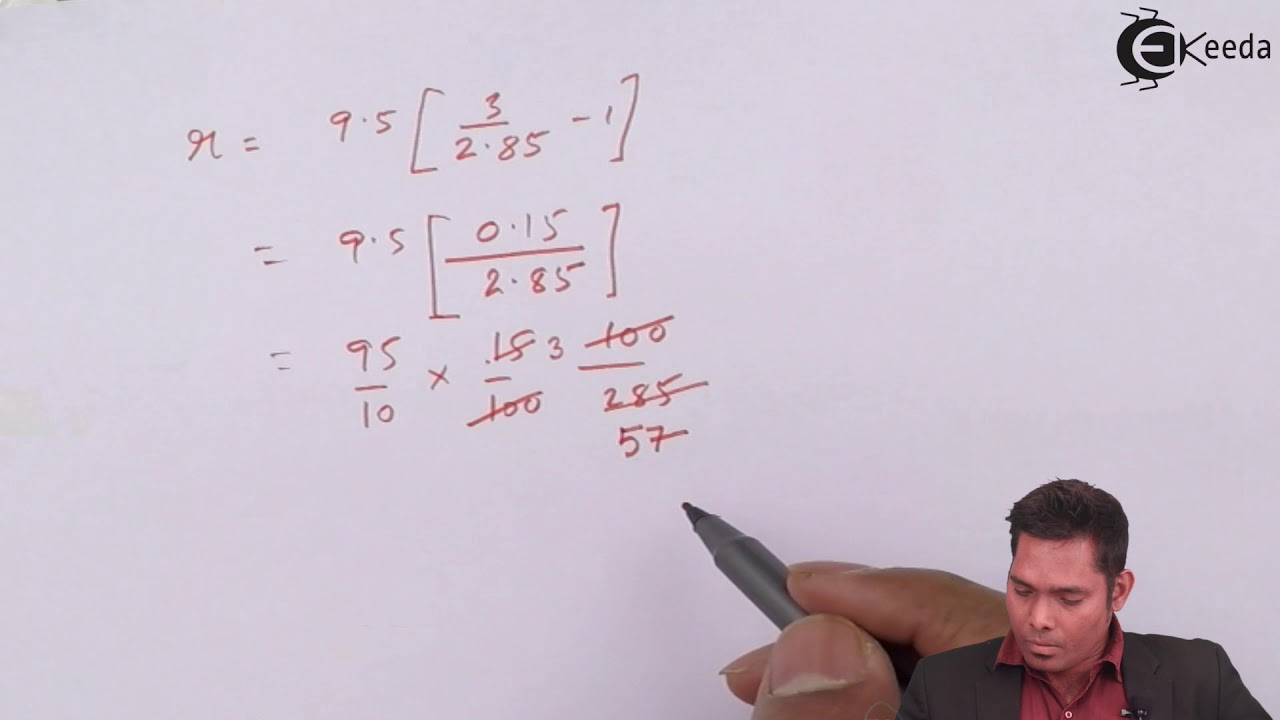 eKeeda
r = 9.5 [ 3/2.85 - 1 ]
= 9.5 [ 0.15/2.85 ]
= 95/10 × 15/100 3 100/285
57